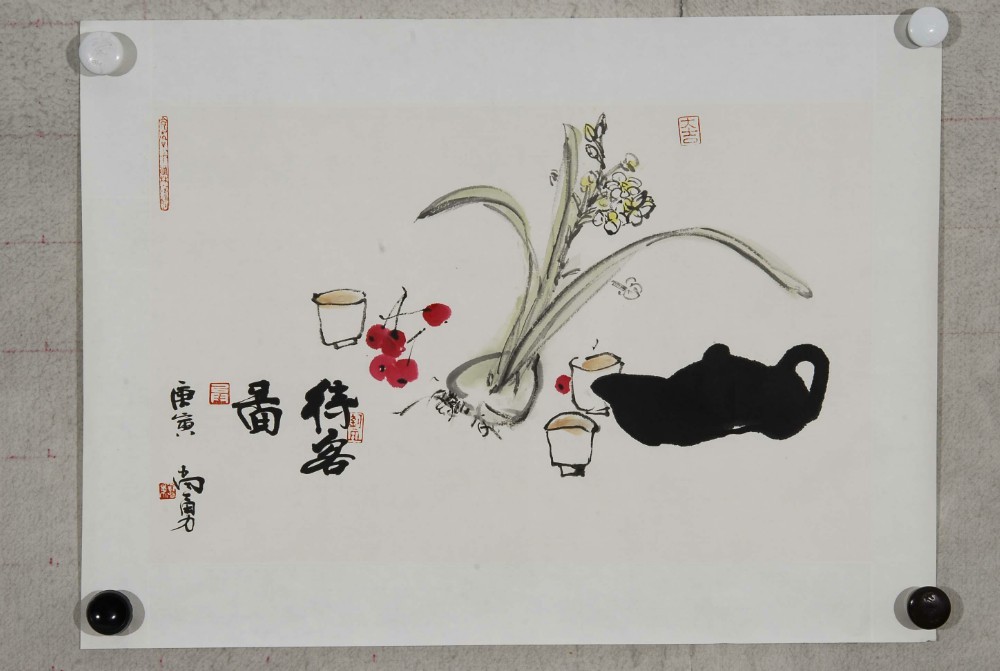 大吉
待客
图
庚寅
尚勇